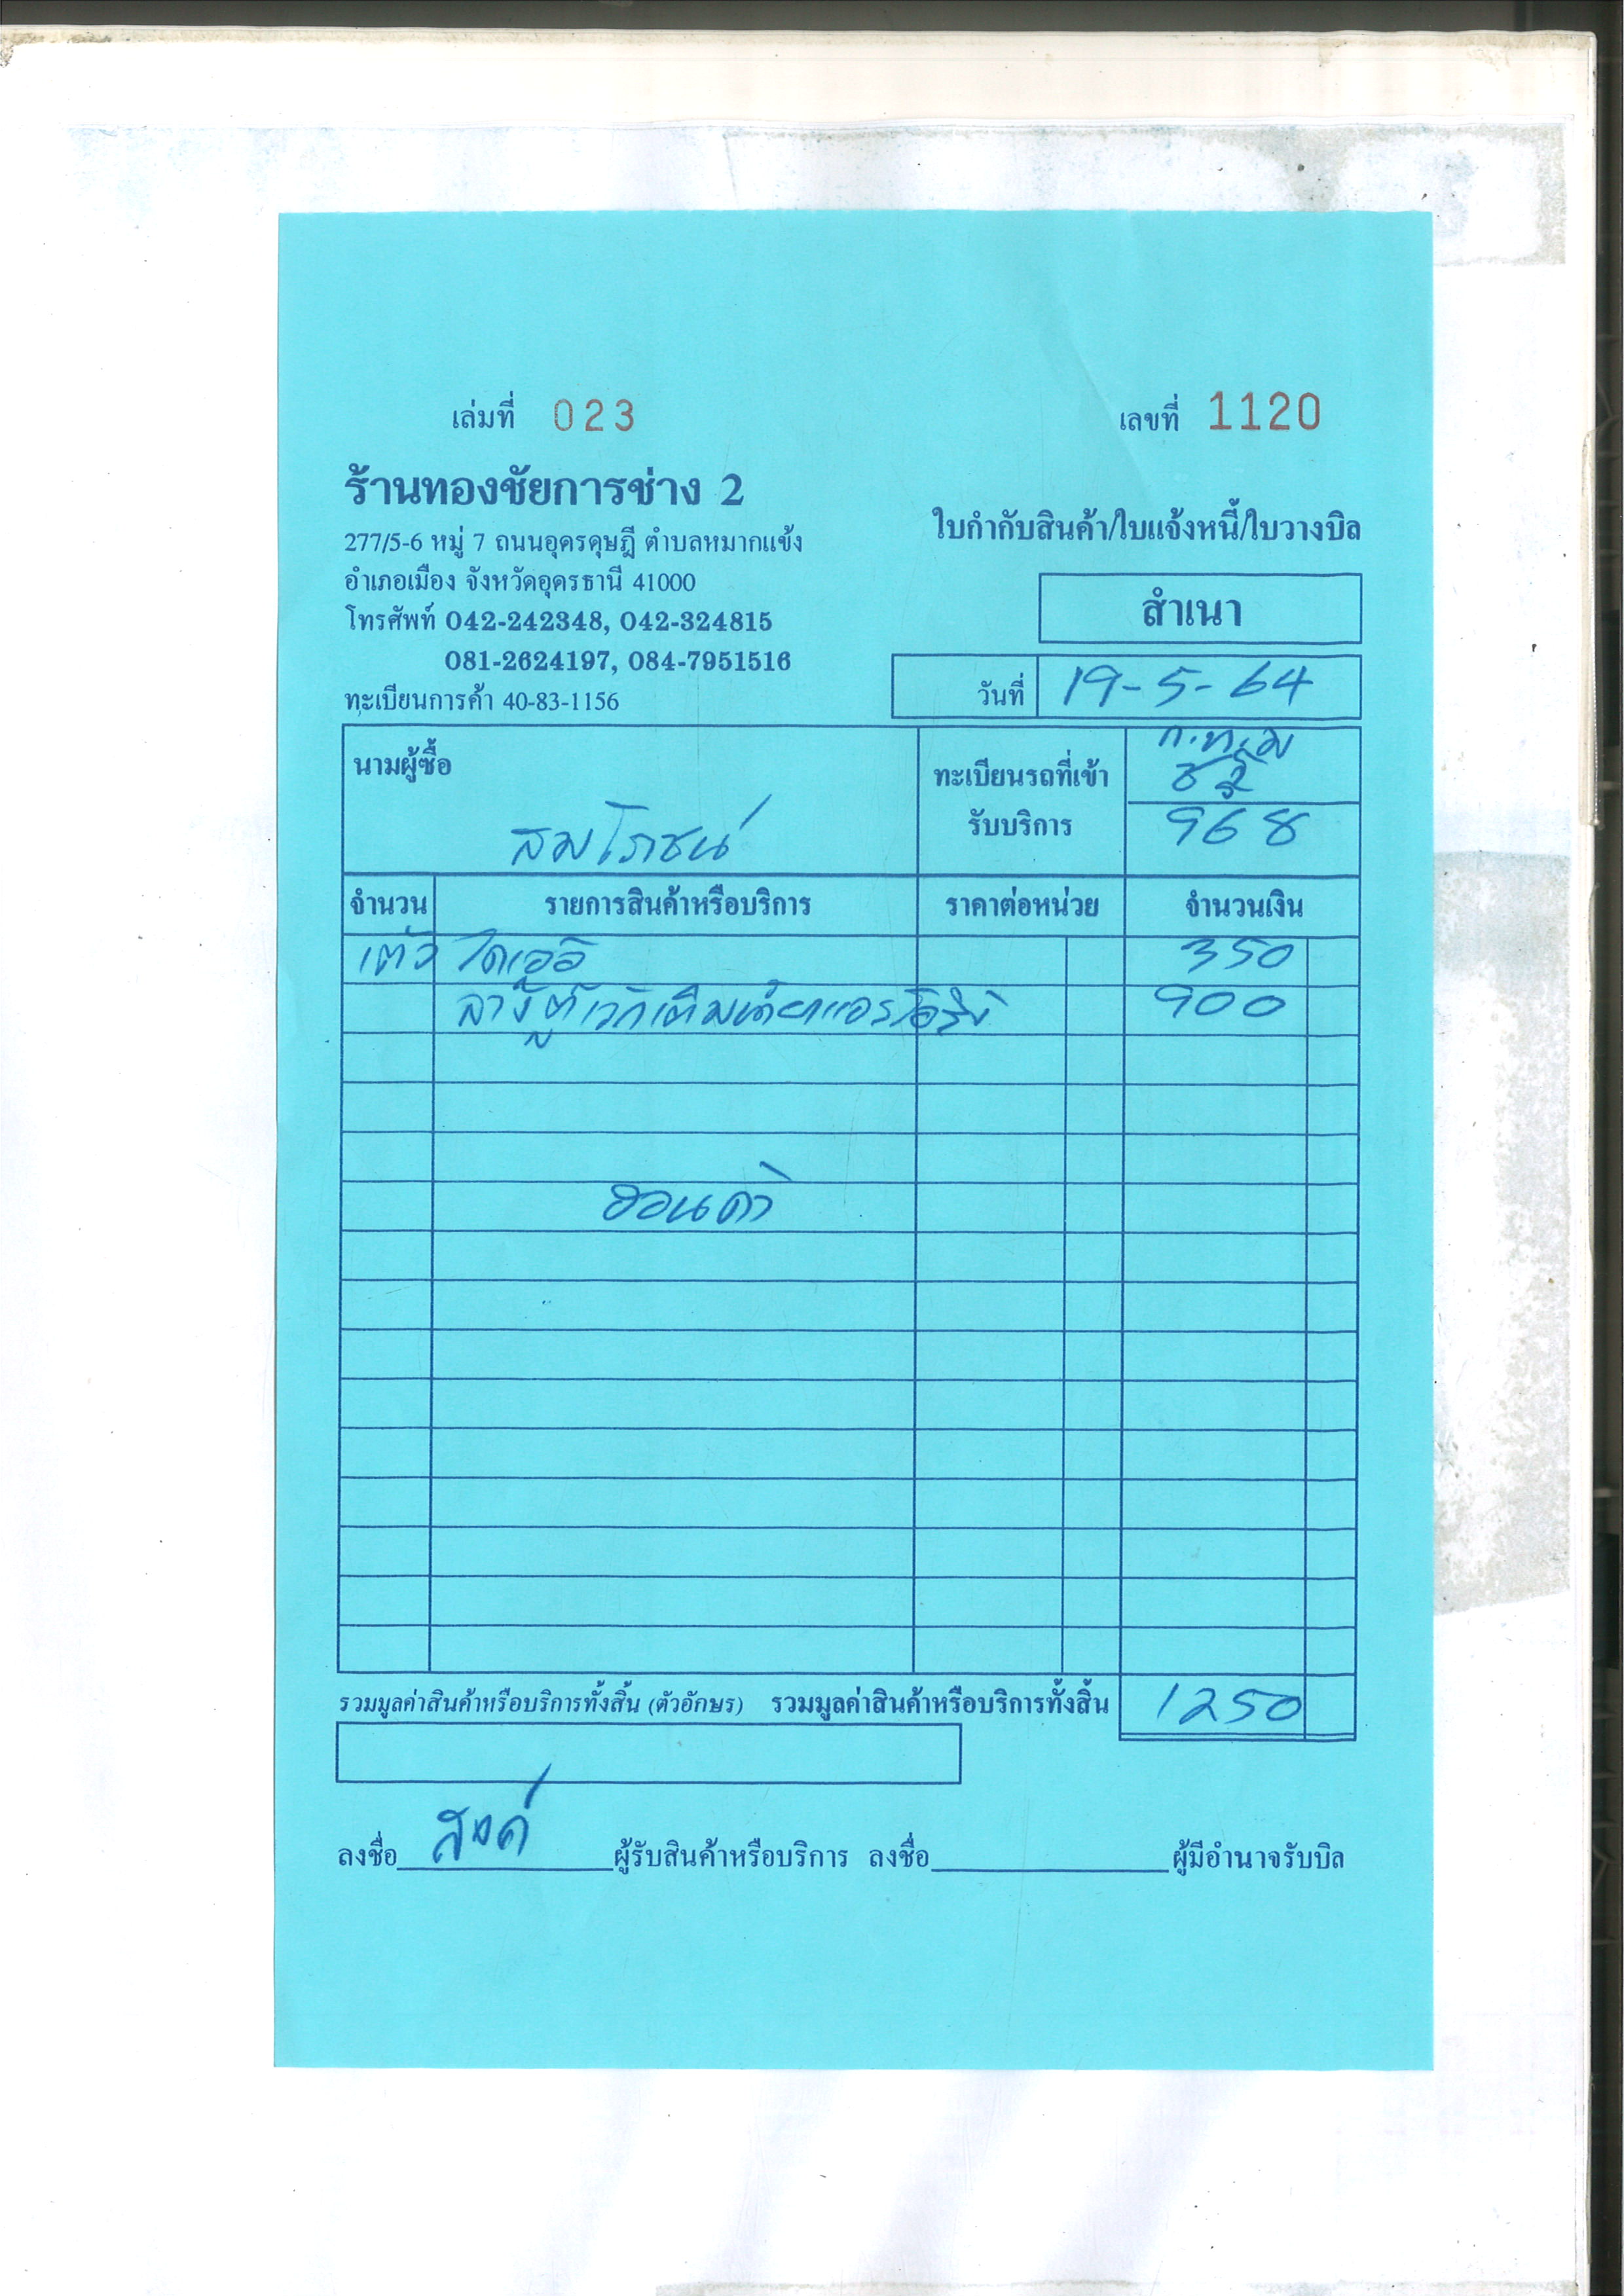 เล่มที่ 023
เลขที่ 1120
ร้านทองชัยการช่าง 2
277/5-6 หมู่ 7 ถนนอุดรดุษฎี ตำบลหมากแข้ง
อำเภอเมือง จังหวัดอุดรธานี 41000
โทรศัพท์ 042-242348, 042-324815
081-2624197, 084-7951516
ทะเบียนการค้า 40-83-1156
ใบกำกับสินค้า/ใบแจ้งหนี้/ใบวางบิล
สำเนา
วันที่ 19-5-64
นามผู้ซื้อ
สมโภชน์
ทะเบียนรถที่เข้า
รับบริการ
ก.ท.ม
968
จำนวน รายการสินค้าหรือบริการ ราคาต่อหน่วย จำนวนเงิน
1 ตัว 350
ล้างตู้ 900
ฮอนด้า
รวมมูลค่าสินค้าหรือบริการทั้งสิ้น (ตัวอักษร) รวมมูลค่าสินค้าหรือบริการทั้งสิ้น 1250
ลงชื่อ ผู้รับสินค้าหรือบริการ ลงชื่อ ผู้มีอำนาจรับบิล